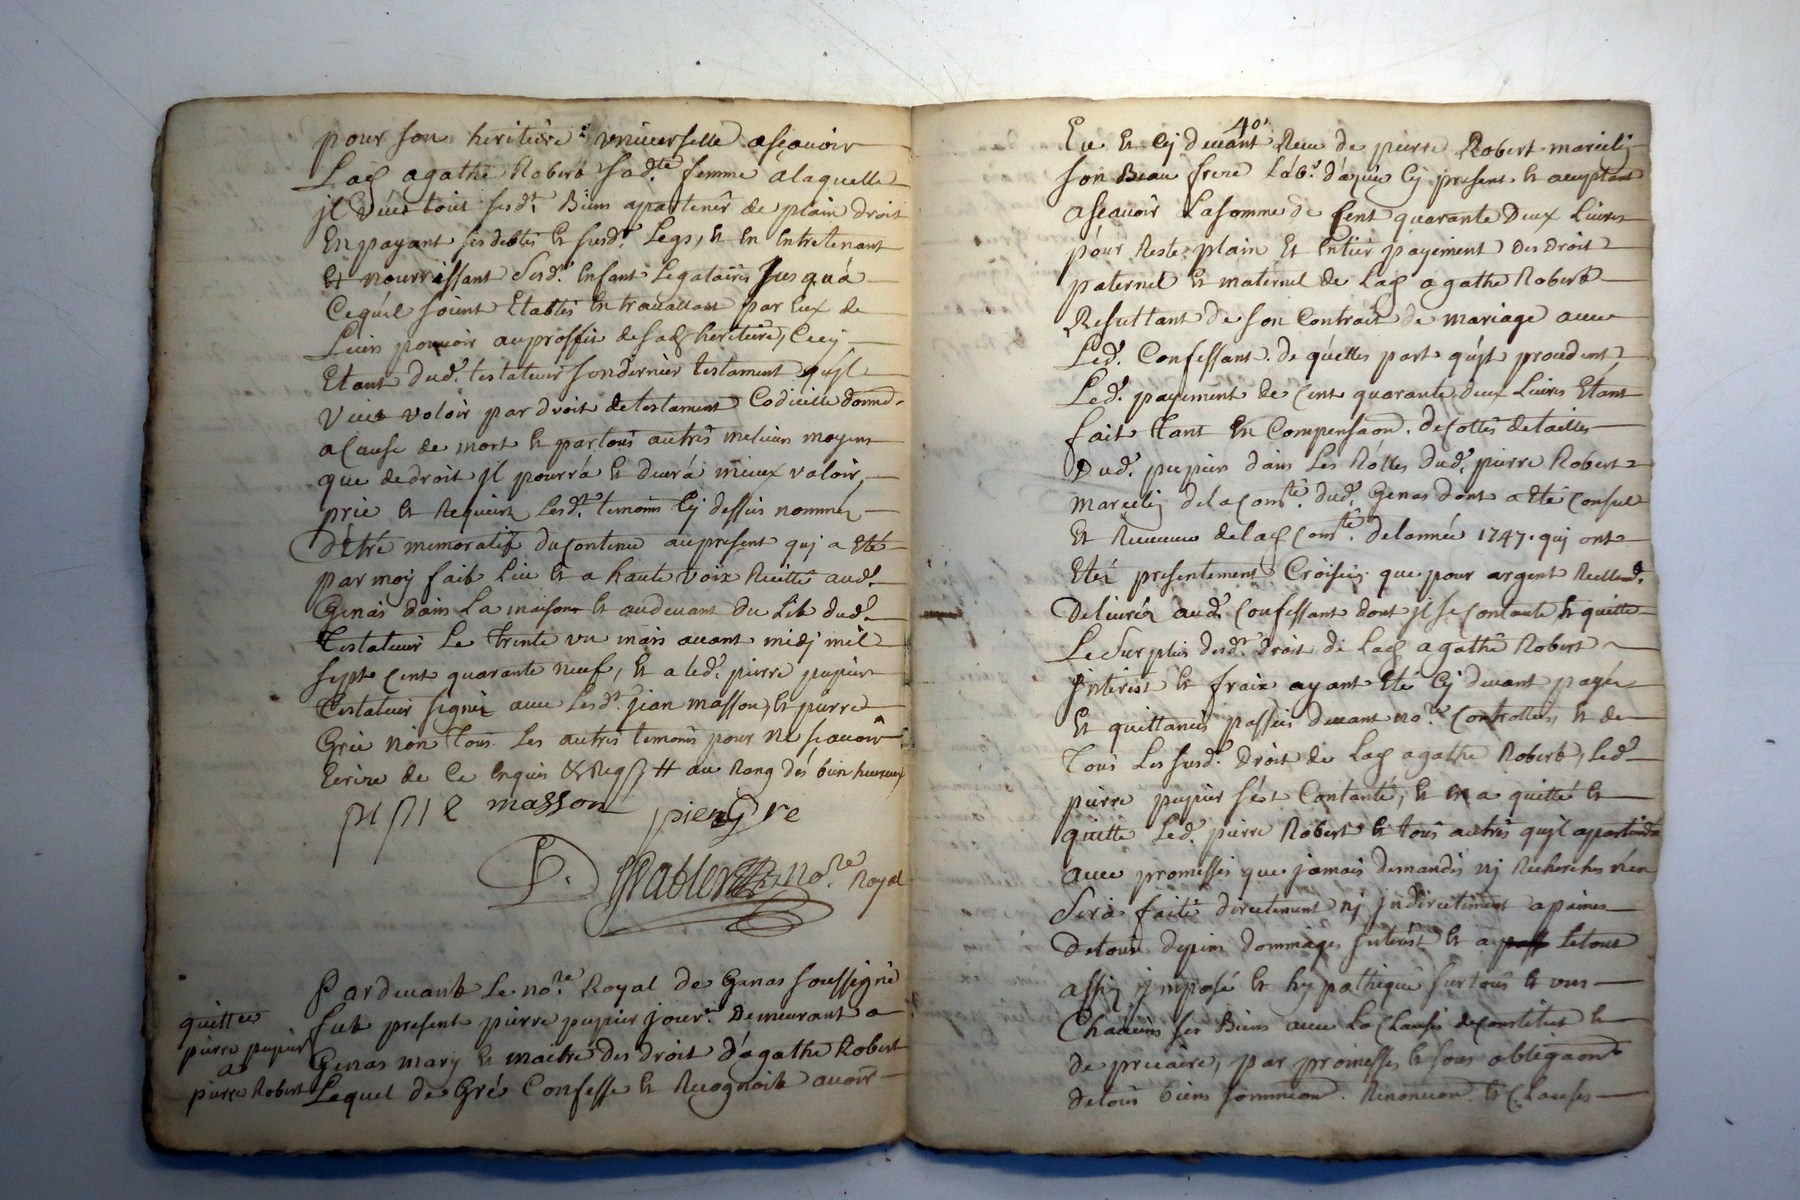 pour son heritiere universelle asçavoir
Lad agathe Robert sad.te femme a laquelle
jl veut tout sesd.t Biens apartenir de plain droit
En payant ses debtes et susd.t Legs, et En Entretenant
Et nourrissant Sesd.t Enfant Legataires Jusqu'á
Cequ'il soient Etablis En travaillant par Eux de
Leur pouvoir au proffit de sad heritiere, Cecy
Etant dud.t testateur son dernier testament qu'jl
Veut valoir par droit de testament Codicille donnà.
a Cause de mort et par tous autres melieurs moyens
que de droit jl pourrá et devrá mieux valoir,
prie et Requiert Lesd.t temoins Cy dessus nommés
D'être memoratif du contenu au present quj a Eté
par moy fait Leu et a haute voix Recitté aud.t
Genas dans La maison et audevant du Lit dud.t
Testateur Le trente un mars avant midj mil
sept Cent quarante neuf, et a led.t pierre pupier
Testateur signé avec Lesd.t jean masson, et pierre
Gré non tous Les autres temoins pour ne sçavoir
Ecrire de Ce Enquis & Req # au Rang des bien heureux
masson
no.re Royal
Pardevant Le no.re Royal de Genas soussigné
quittce
fut present pierre pupier jour.r Demeurant a
pierre pupier
Genas mary et maitre des droit d'agathe Robert
a
pierre Robert
Lequel de Gré Confesse et Recognoit avoir
40
Eu et Cj devant Receu de pierre Robert marcelij
son Beau frere Lab.r d'azieu Cj present et acceptant
asçavoir La somme de Cent quarante Deux Livres
pour Reste, plain et Entier payement Des Droit
paternel et maternel de Lad agathe Robert
Resultant de son Contrait de mariage avec
Led.t Confessant. de quelles part qu'jl procedent
Led.t payement de Cent quarante deux Livres Etant
fait tant En Compensaon. de Cottes de tailles
Dud.t pupier dans Les Rolles dud.t pierre Robert
Marcelij de la Com.té dud.t Genas dont a Eté Consul
Et Receveur de lad Com.té de l'année 1747. quj ont
Eté presentement Croisées que pour argent Reellem.t
Delivré aud.t Confessant dont jl se contante et quitte
Le Surplus desd.t Droit de Lad agathe Robert
jnterest et fraix ayant Eté Cj devant payés
Et quittances passées devant no.re Controllées, et de
Tous Les susd.t Droit de Lad agathe Robert, Led.t
pierre pupier s'est Contanté, et En a quitté et
quitte Led.t pierre Robert et tous autres qu'jl apartiendra
avec promesses que jamais demandes nj Recherches n'en
Sera faite directement nj jndirectement a peines
De tous depens dommages jnterest et a le tout
assis jmposé et hypothequé sur tous et uns
Chacuns ses Biens avec La Clause de constitut et
de precaire, par promesses et sous obligaons
de tous biens soumision. Renoncion. et Clauses